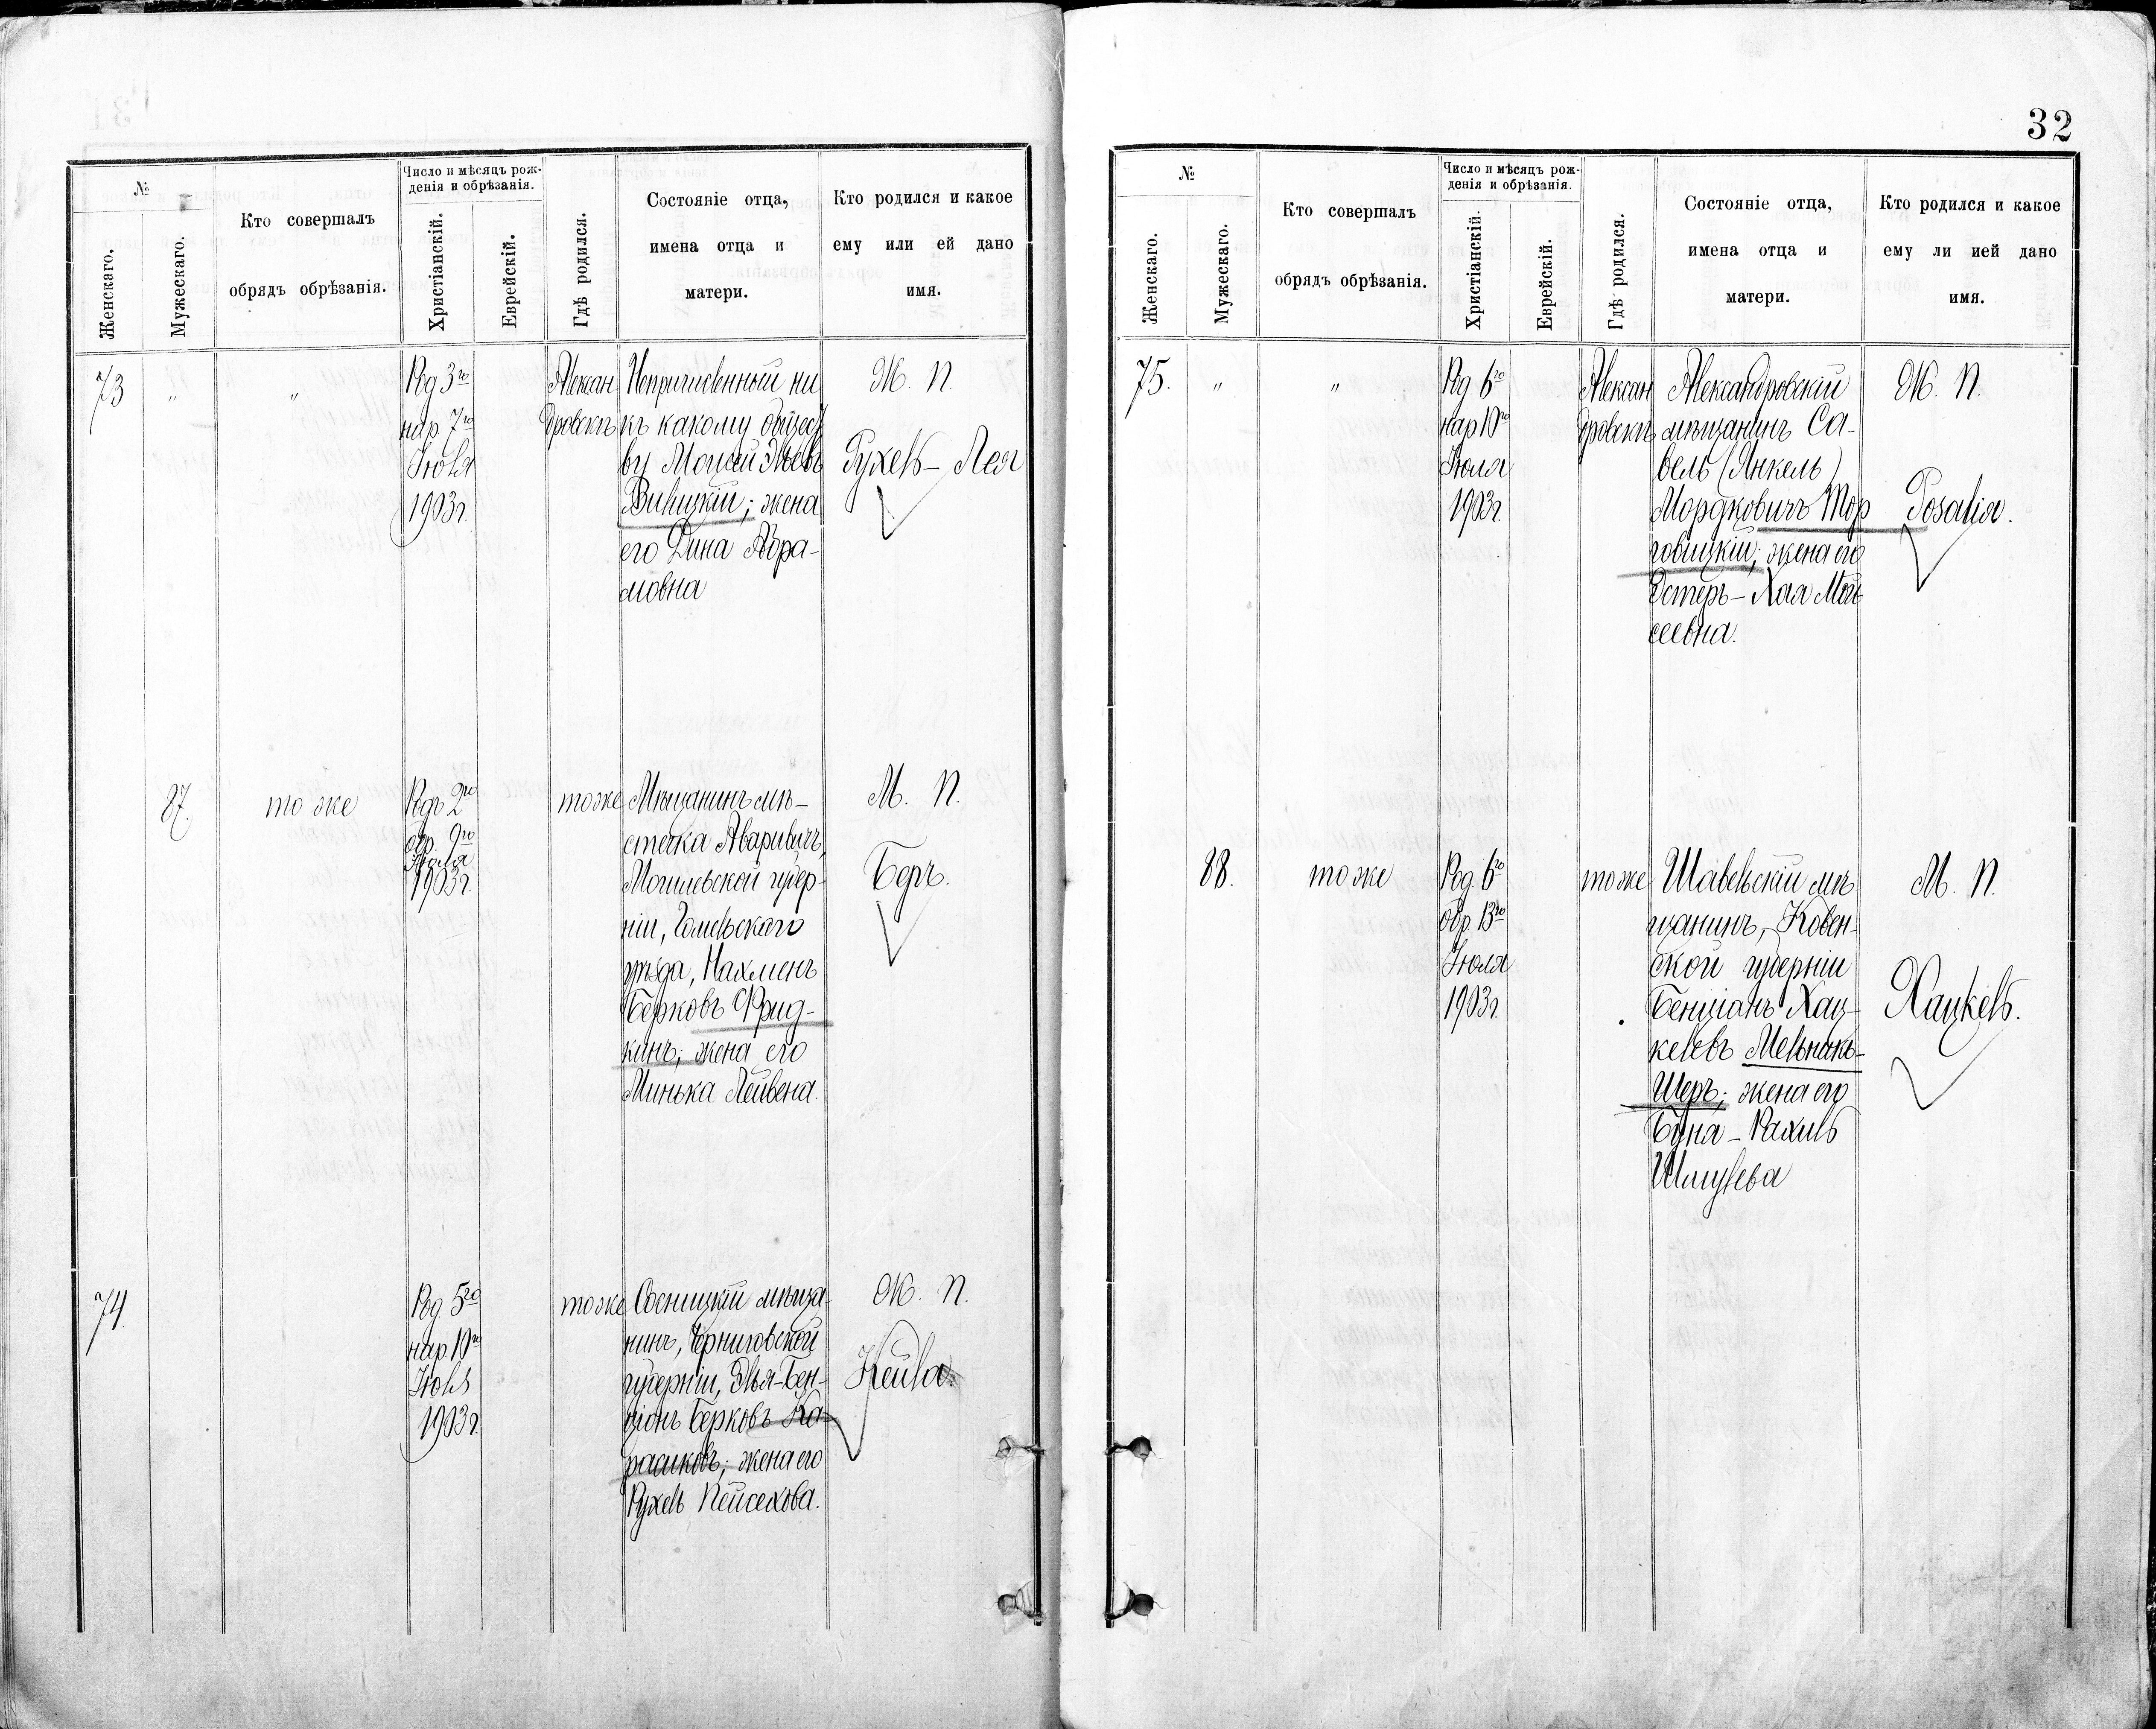 32
№
Женскаго.
Мужескаго.
Кто совершалъ
обрядъ обрѣзанія.
Число и мѣсяцъ рож-
денія и обрѣзанія.
Христіанскій.
Еврейскій.
Гдѣ родился.
Состояніе отца,
имена отца и
матери.
Кто родился и какое
ему или ей дано
имя.
73
"
"
Род 3го
нар. 7го
Іюля
1903г.
Алексан
дровскъ
Непричисленный ни
къ какому общест
ву Моисей Эльевъ
Вилицкій; жена
его Дина Абра-
мовна
Ж. П.
Рухель - Лея
87.
тоже
Родъ 2го
обр. 9го
Іюля
1903г.
тоже
Мѣщанинъ мѣ-
стечка
Могилевской губер-
ніи, Гомельскаго
уѣзда, Нахменъ
Берковъ Фрид-
кинъ; жена его
Минька Лейвена.
М. П.
Беръ.
74.
Род. 5го
нар. 10го
Іюля
1903г.
тоже
Сосницкій мѣща
нинъ, Черниговской
губерніи, Элья-Бен-
ціонъ Берковъ Ка-
расиковъ; жена его
Рухель Пейсехова.
Ж. П.
Кейла.
№
Женскаго.
Мужескаго.
Кто совершалъ
обрядъ обрѣзанія.
Число и мѣсяцъ рож-
денія и обрѣзанія.
Христіанскій.
Еврейскій.
Гдѣ родился.
Состояніе отца,
имена отца и
матери.
Кто родился и какое
ему ли ией дано
имя.
75.
"
"
Род 6го
нар 10го
Іюля
1903г.
Алексан
дровскъ
Александровскій
мѣщанинъ Са-
вель (Янкель)
Мордковичъ Тор
говицкій; жена его
Эстеръ - Хая Мои
сеевна.
Ж. П.
Розалія.
88.
тоже
Род. 6го
обр. 13го
Іюля
1903г.
тоже
Шавельскій мѣ
щанинъ, Ковен-
ской губерніи
Бенціанъ Хац-
келевъ Мельникъ-
Шеръ; жена его
Буна - Рахиль
Шмулева
М. П.
Хацкель.